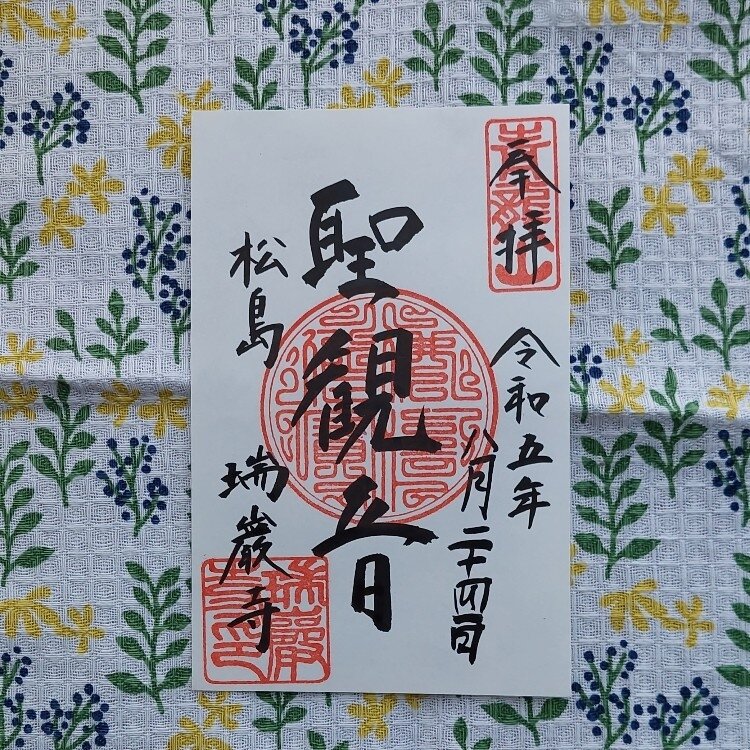 奉拝
令和五年
八月二十四日
聖観音
松島
瑞巌寺